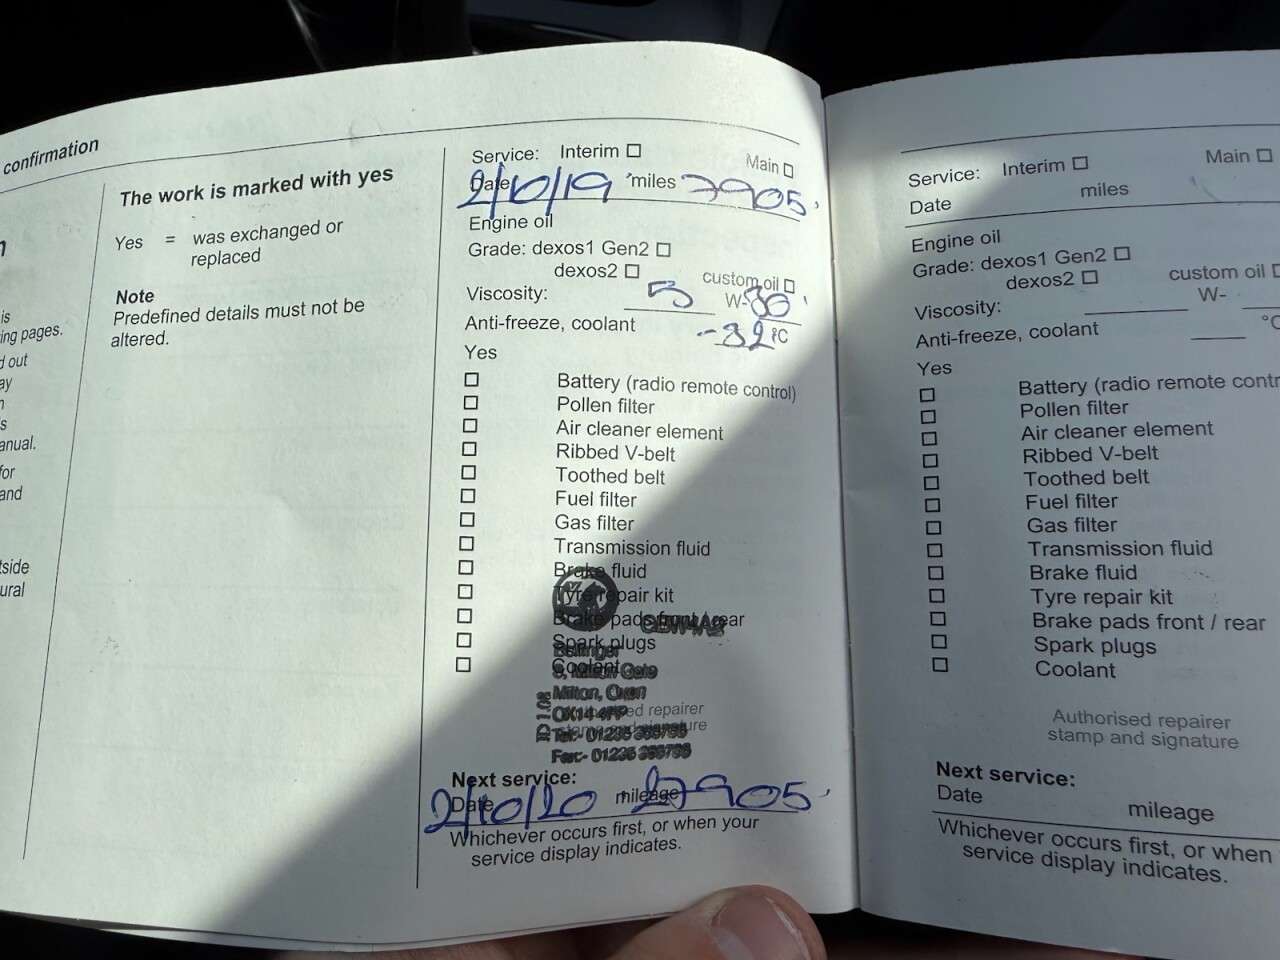 confirmation
The work is marked with yes
Yes = was exchanged or
replaced
Note
Predefined details must not be
altered.
is
ing pages.
d out
ay
n
s
anual.
for
and
tside
ural
Service: Interim Main
Date 2/10/19 miles 7905
Engine oil
Grade: dexos1 Gen2
dexos2 custom oil
Viscosity: 5 W-30
Anti-freeze, coolant -32 °C
Yes
Battery (radio remote control)
Pollen filter
Air cleaner element
Ribbed V-belt
Toothed belt
Fuel filter
Gas filter
Transmission fluid
Brake fluid
Tyre repair kit
Brake pads front / rear
Spark plugs
Coolant
Bellinger
Milton, Oxon
OX14 4FP
ed repairer
stamp and signature
Tel:- 01235
Fax:- 01235
Next service:
Date 2/10/20 mileage 27905
Whichever occurs first, or when your
service display indicates.
Service: Interim Main
Date miles
Engine oil
Grade: dexos1 Gen2
dexos2 custom oil
Viscosity: W-
Anti-freeze, coolant °C
Yes
Battery (radio remote contr
Pollen filter
Air cleaner element
Ribbed V-belt
Toothed belt
Fuel filter
Gas filter
Transmission fluid
Brake fluid
Tyre repair kit
Brake pads front / rear
Spark plugs
Coolant
Authorised repairer
stamp and signature
Next service:
Date mileage
Whichever occurs first, or when
service display indicates.